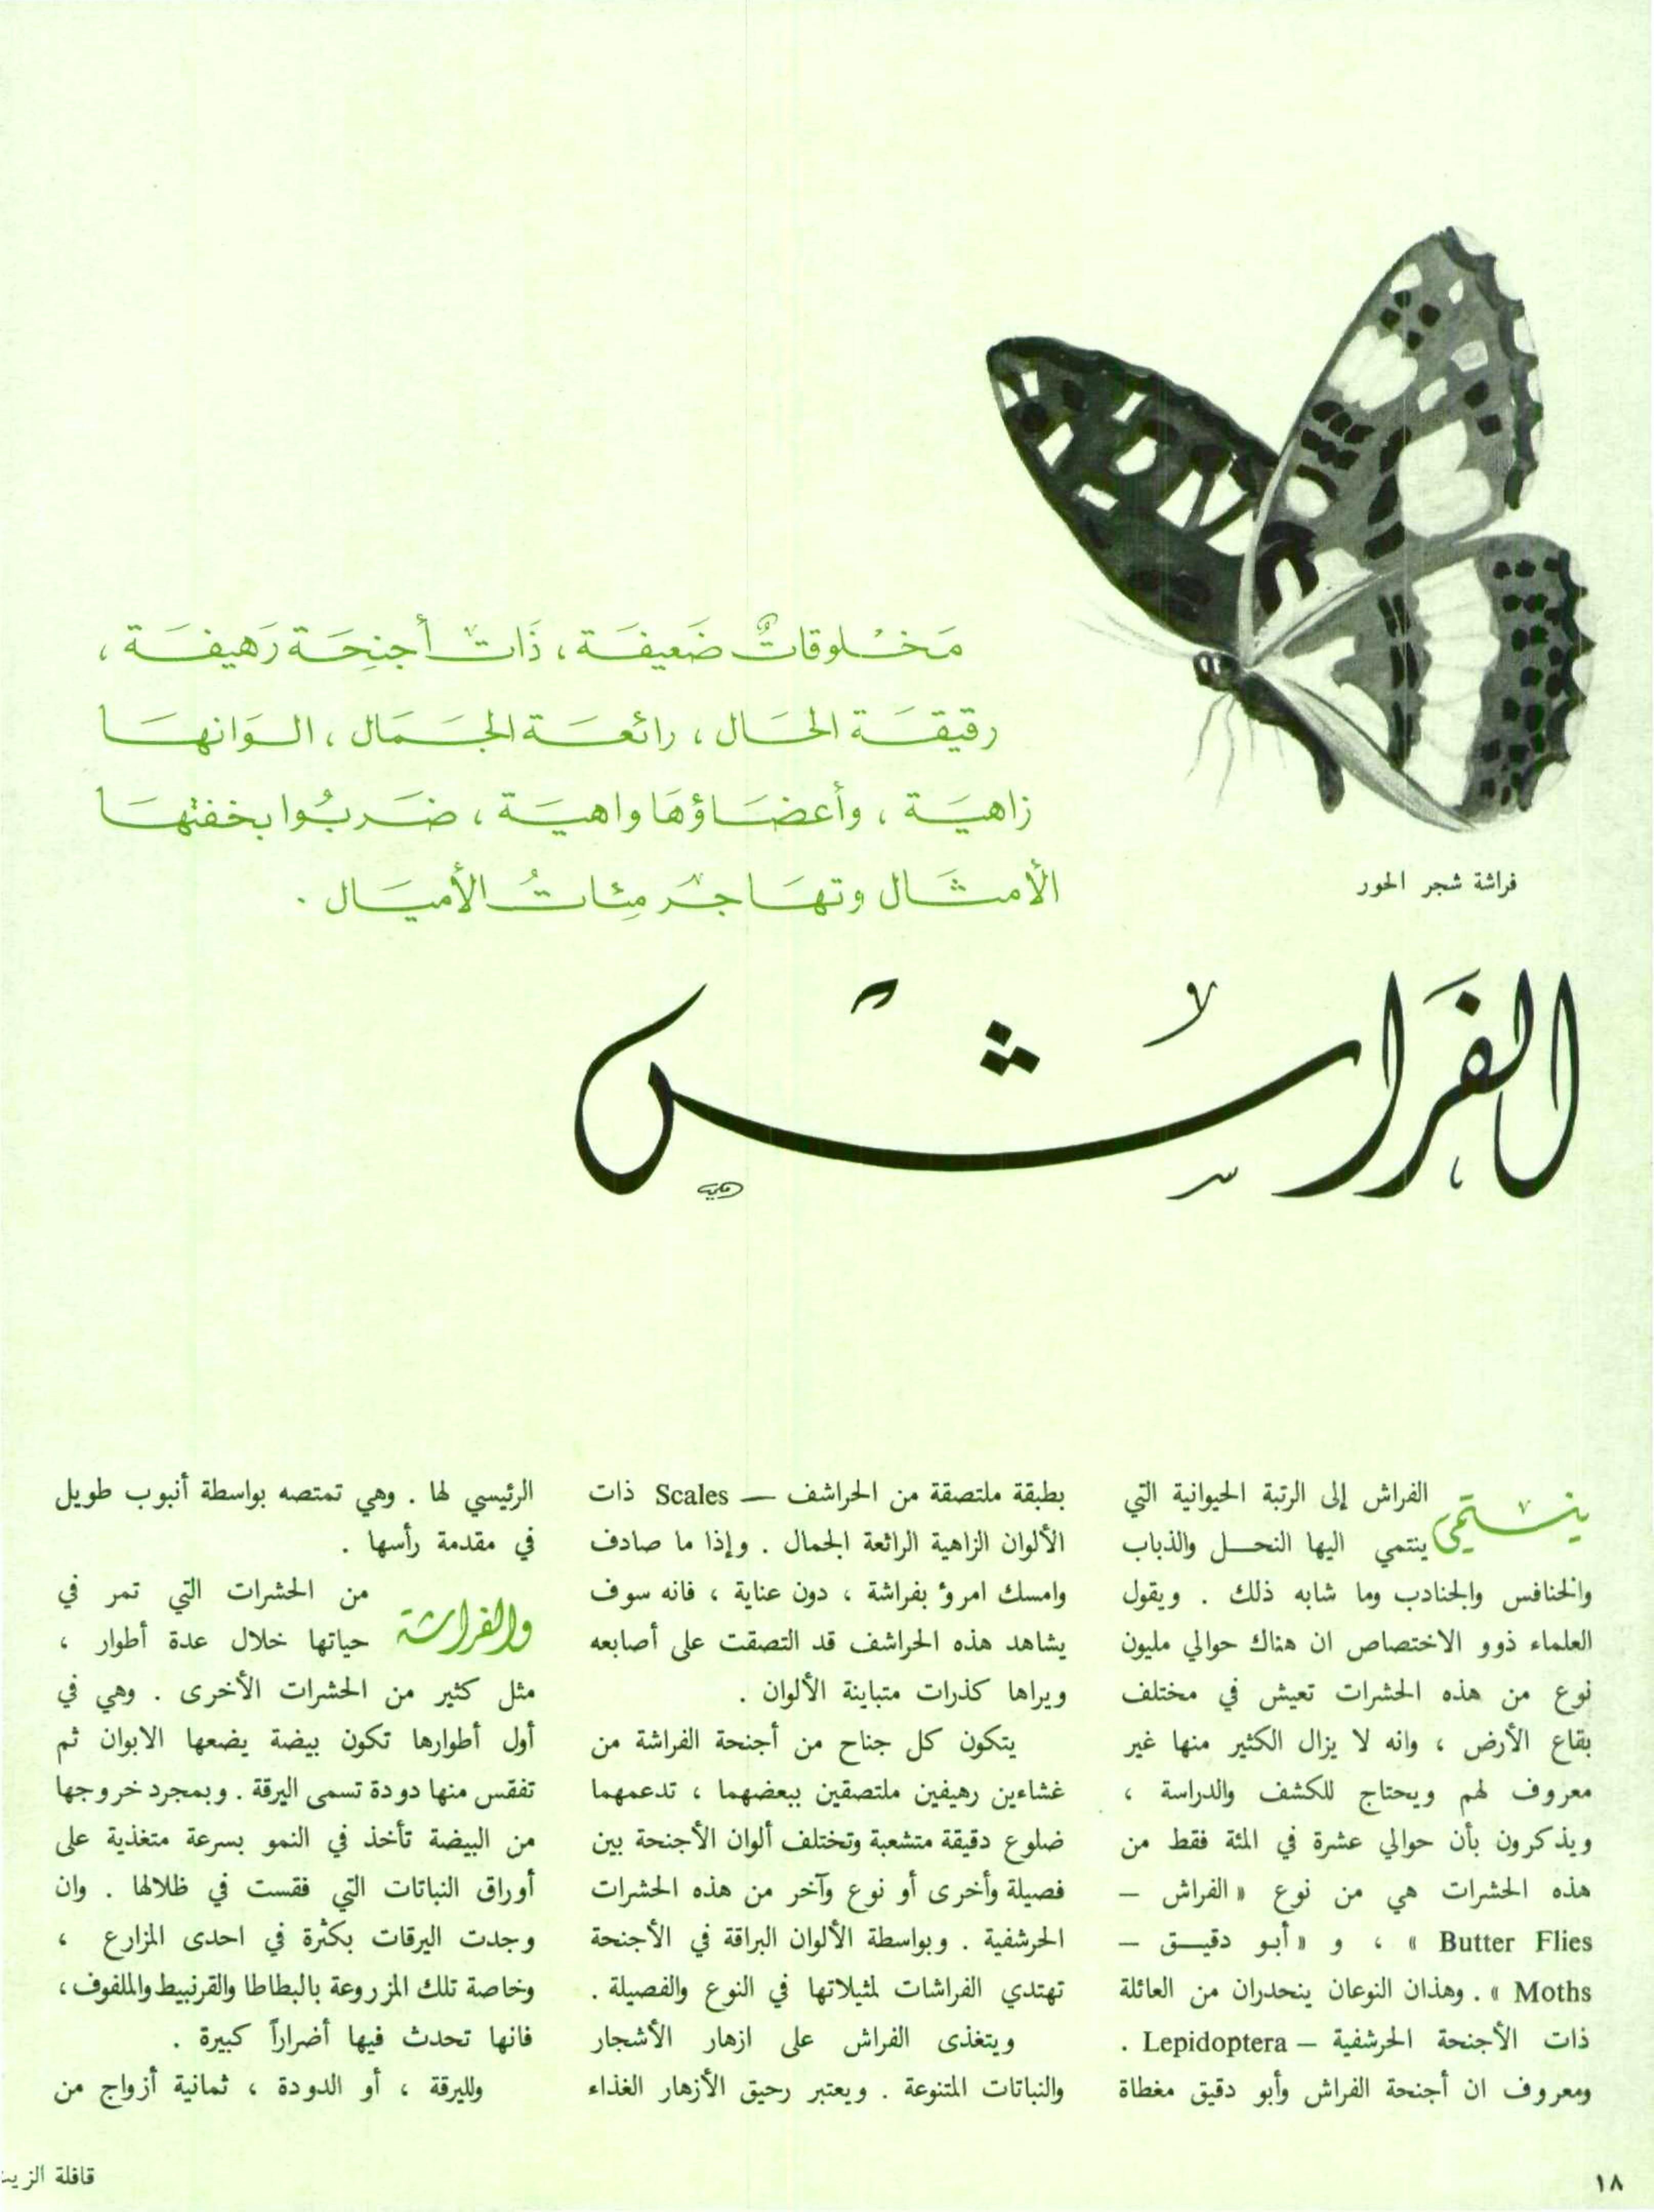 مَخلوقاتٌ ضَعيفَة، ذَات أجنِحَة رَهيفَة،
رقيقَة الحَال، رائعَة الجَمَال، الوَانهَا
زاهيَة، وأعضَاؤهَا واهيَة، ضَربُوا بخفتهَا
الأمثَال وتهَاجرَ مِئاتُ الأميَال.
فراشة شجر الحور
الفَراش
ينتمي الفراش إلى الرتبة الحيوانية التي
ينتمي اليها النحل والذباب
والخنافس والجنادب وما شابه ذلك . ويقول
العلماء ذوو الاختصاص ان هناك حوالي مليون
نوع من هذه الحشرات تعيش في مختلف
بقاع الأرض ، وانه لا يزال الكثير منها غير
معروف لهم ويحتاج للكشف والدراسة ،
ويذكرون بأن حوالي عشرة في المئة فقط من
هذه الحشرات هي من نوع « الفراش –
Butter Flies » ، و « أبو دقيق –
Moths » . وهذان النوعان ينحدران من العائلة
ذات الأجنحة الحرشفية – Lepidoptera .
ومعروف ان أجنحة الفراش وأبو دقيق مغطاة
بطبقة ملتصقة من الحراشف — Scales ذات
الألوان الزاهية الرائعة الجمال . وإذا ما صادف
وامسك امرؤ بفراشة ، دون عناية ، فانه سوف
يشاهد هذه الحراشف قد التصقت على أصابعه
ويراها كذرات متباينة الألوان .
يتكون كل جناح من أجنحة الفراشة من
غشاءين رهيفين ملتصقين ببعضهما ، تدعمهما
ضلوع دقيقة متشعبة وتختلف ألوان الأجنحة بين
فصيلة وأخرى أو نوع وآخر من هذه الحشرات
الحرشفية . وبواسطة الألوان البراقة في الأجنحة
تهتدي الفراشات لمثيلاتها في النوع والفصيلة .
ويتغذى الفراش على ازهار الأشجار
والنباتات المتنوعة . ويعتبر رحيق الأزهار الغذاء
الرئيسي لها . وهي تمتصه بواسطة أنبوب طويل
في مقدمة رأسها .
والفراشة من الحشرات التي تمر في
حياتها خلال عدة أطوار ،
مثل كثير من الحشرات الأخرى . وهي في
أول أطوارها تكون بيضة يضعها الابوان ثم
تفقس منها دودة تسمى اليرقة . وبمجرد خروجها
من البيضة تأخذ في النمو بسرعة متغذية على
أوراق النباتات التي فقست في ظلالها . وان
وجدت اليرقات بكثرة في احدى المزارع ،
وخاصة تلك المزروعة بالبطاطا والقرنبيط والملفوف ،
فانها تحدث فيها أضراراً كبيرة .
ولليرقة ، أو الدودة ، ثمانية أزواج من
١٨
قافلة الزيت